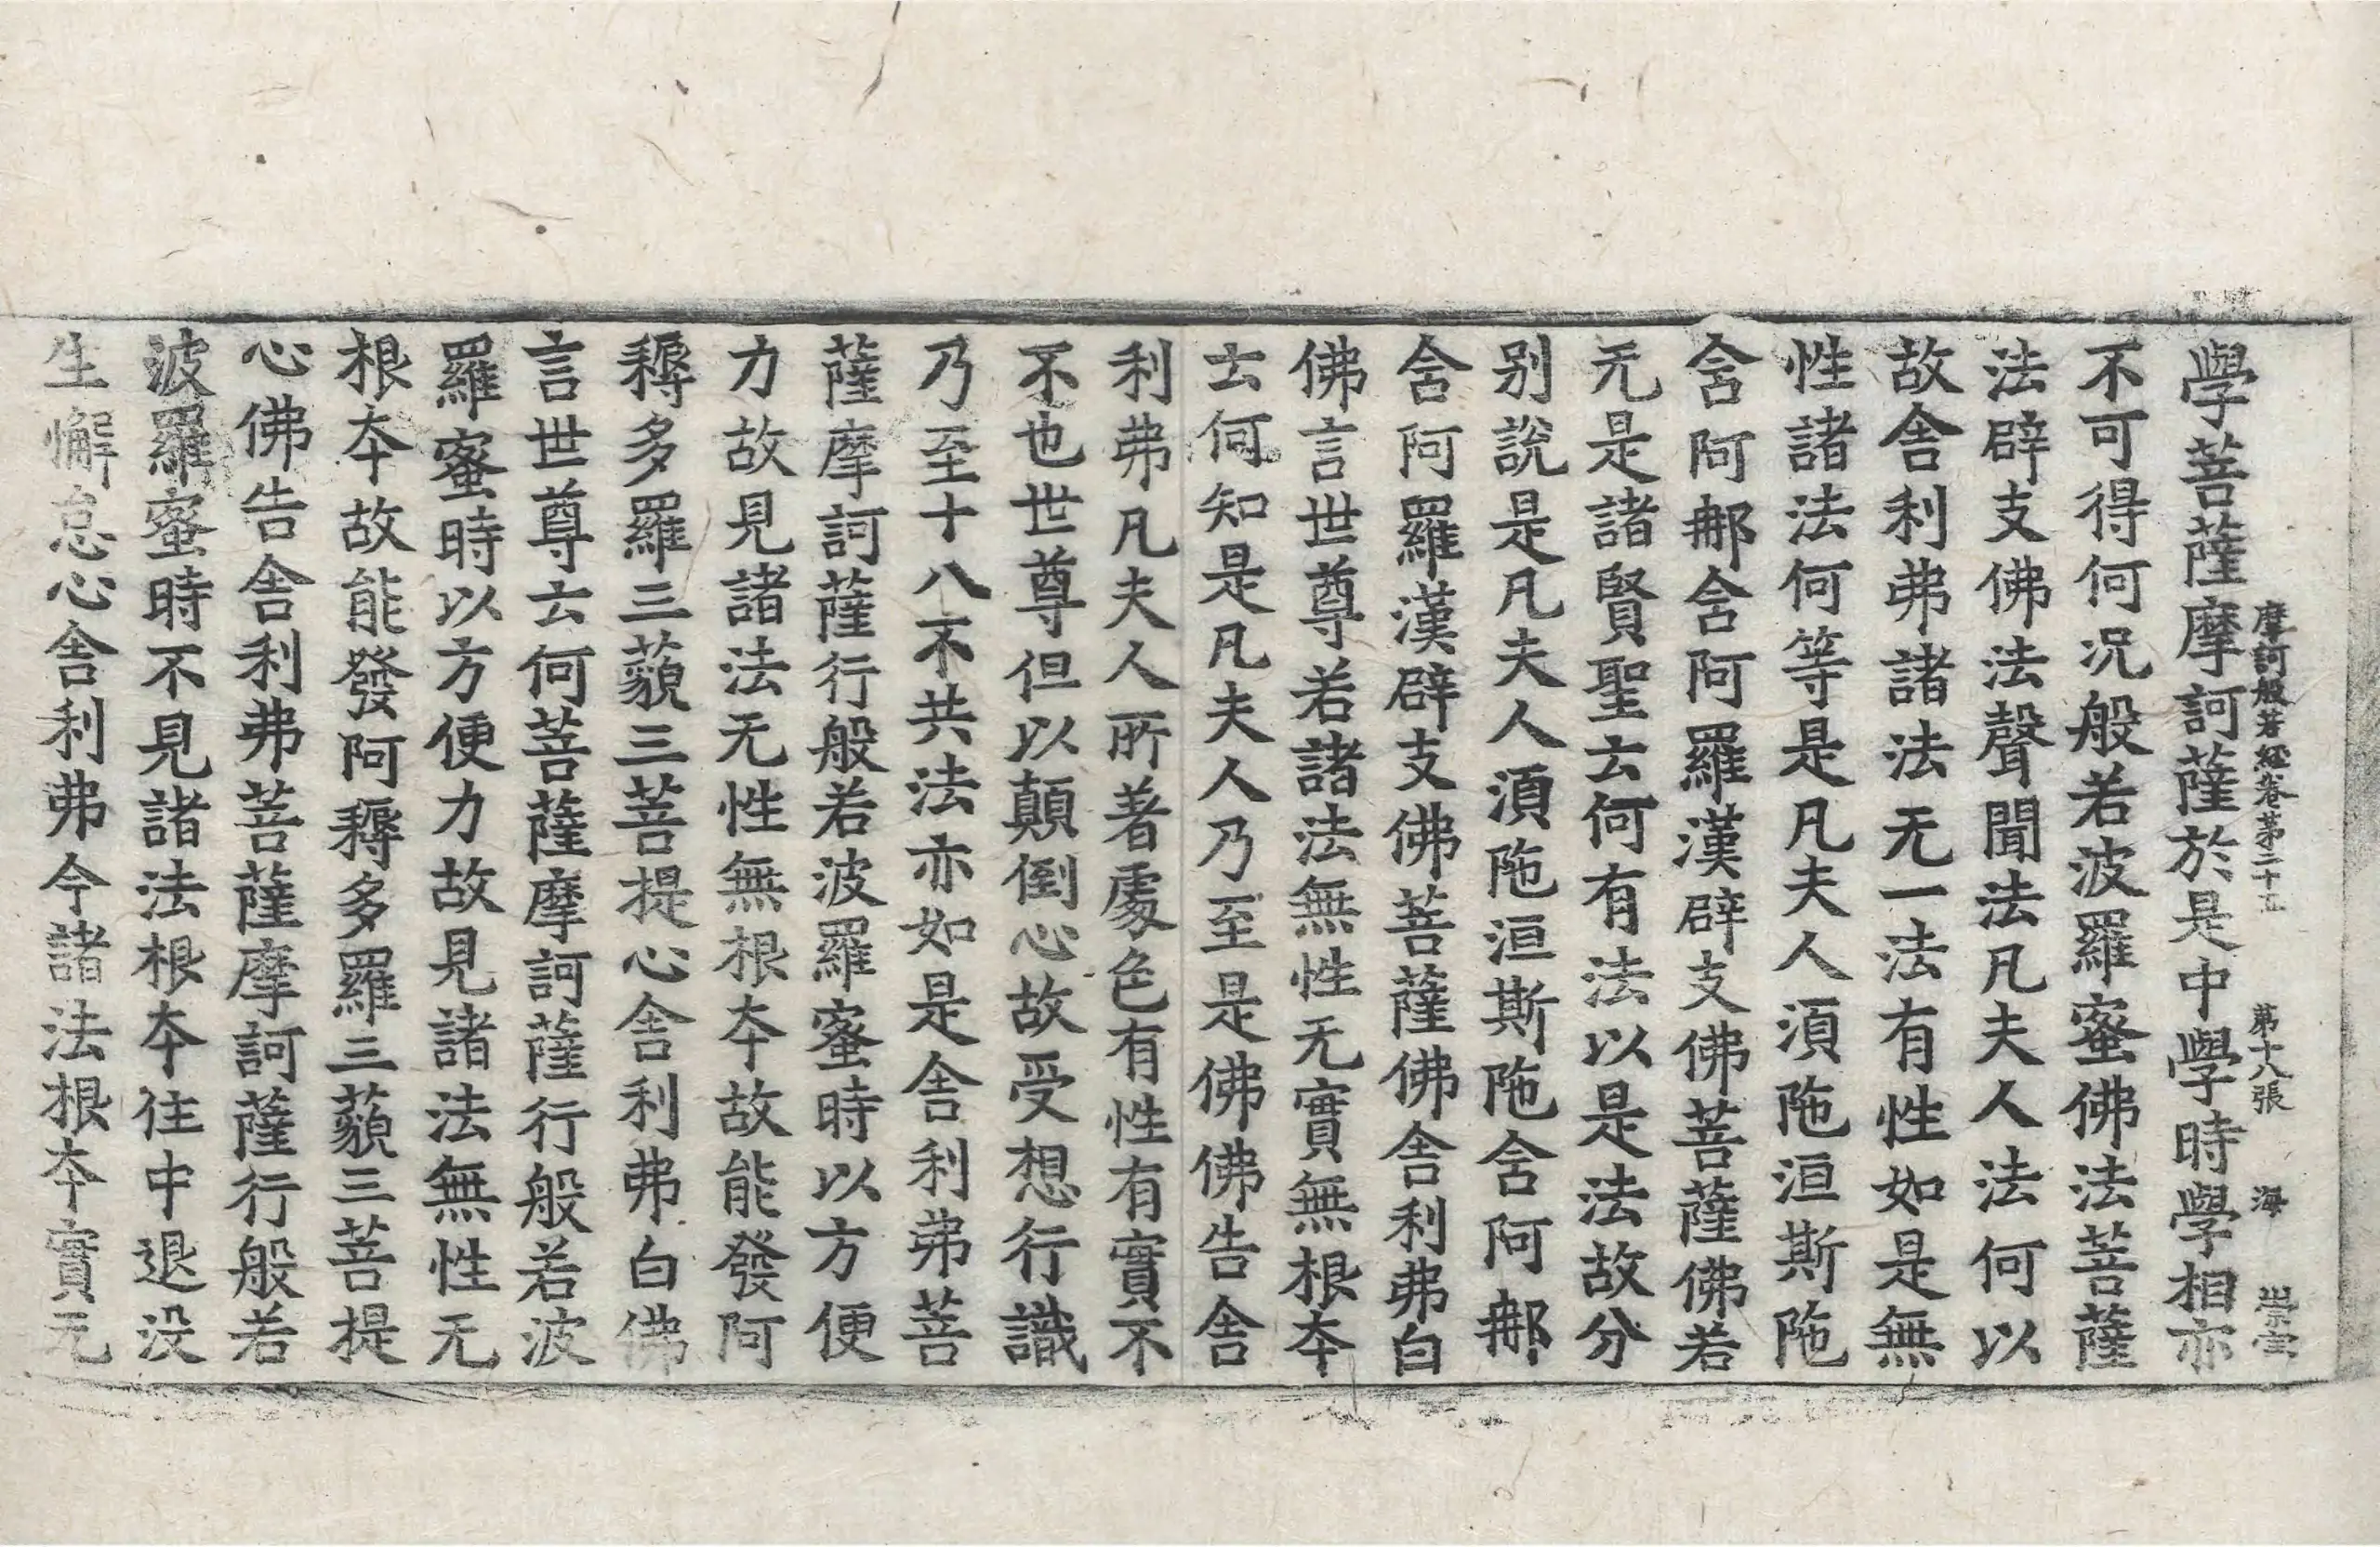 摩訶般若經卷第二十五　第十八張　海　崇壹
學菩薩摩訶薩於是中學時學相亦
不可得何況般若波羅蜜佛法菩薩
法辟支佛法聲聞法凡夫人法何以
故舍利弗諸法无一法有性如是無
性諸法何等是凡夫人湏陁洹斯陁
含阿那含阿羅漢辟支佛菩薩佛若
无是諸賢聖云何有法以是法故分
別說是凡夫人湏陁洹斯陁含阿那
含阿羅漢辟支佛菩薩佛舍利弗白
佛言世尊若諸法無性无實無根夲
云何知是凡夫人乃至是佛佛告舍
利弗凡夫人所著處色有性有實不
不也世尊但以顛倒心故受想行識
乃至十八不共法亦如是舍利弗菩
薩摩訶薩行般若波羅蜜時以方便
力故見諸法无性無根夲故能發阿
耨多羅三藐三菩提心舍利弗白佛
言世尊云何菩薩摩訶薩行般若波
羅蜜時以方便力故見諸法無性无
根夲故能發阿耨多羅三藐三菩提
心佛告舍利弗菩薩摩訶薩行般若
波羅蜜時不見諸法根夲住中退没
生懈怠心舍利弗今諸法根夲實无